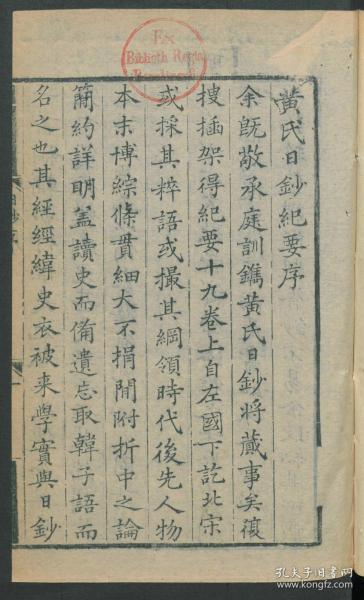 黄氏日鈔紀要序
余既敬承庭訓鐫黄氏日鈔將蕆事矣復
搜插架得紀要十九卷上自左國下訖北宋
或採其粹語或撮其綱領時代後先人物
本末博綜條貫細大不捐閒附折中之論
簡約詳明盖讀史而備遺忘取韓子語而
名之也其經經緯史衣被来學實與日鈔
Ex
Biblioth. Regia
孔夫子旧书网